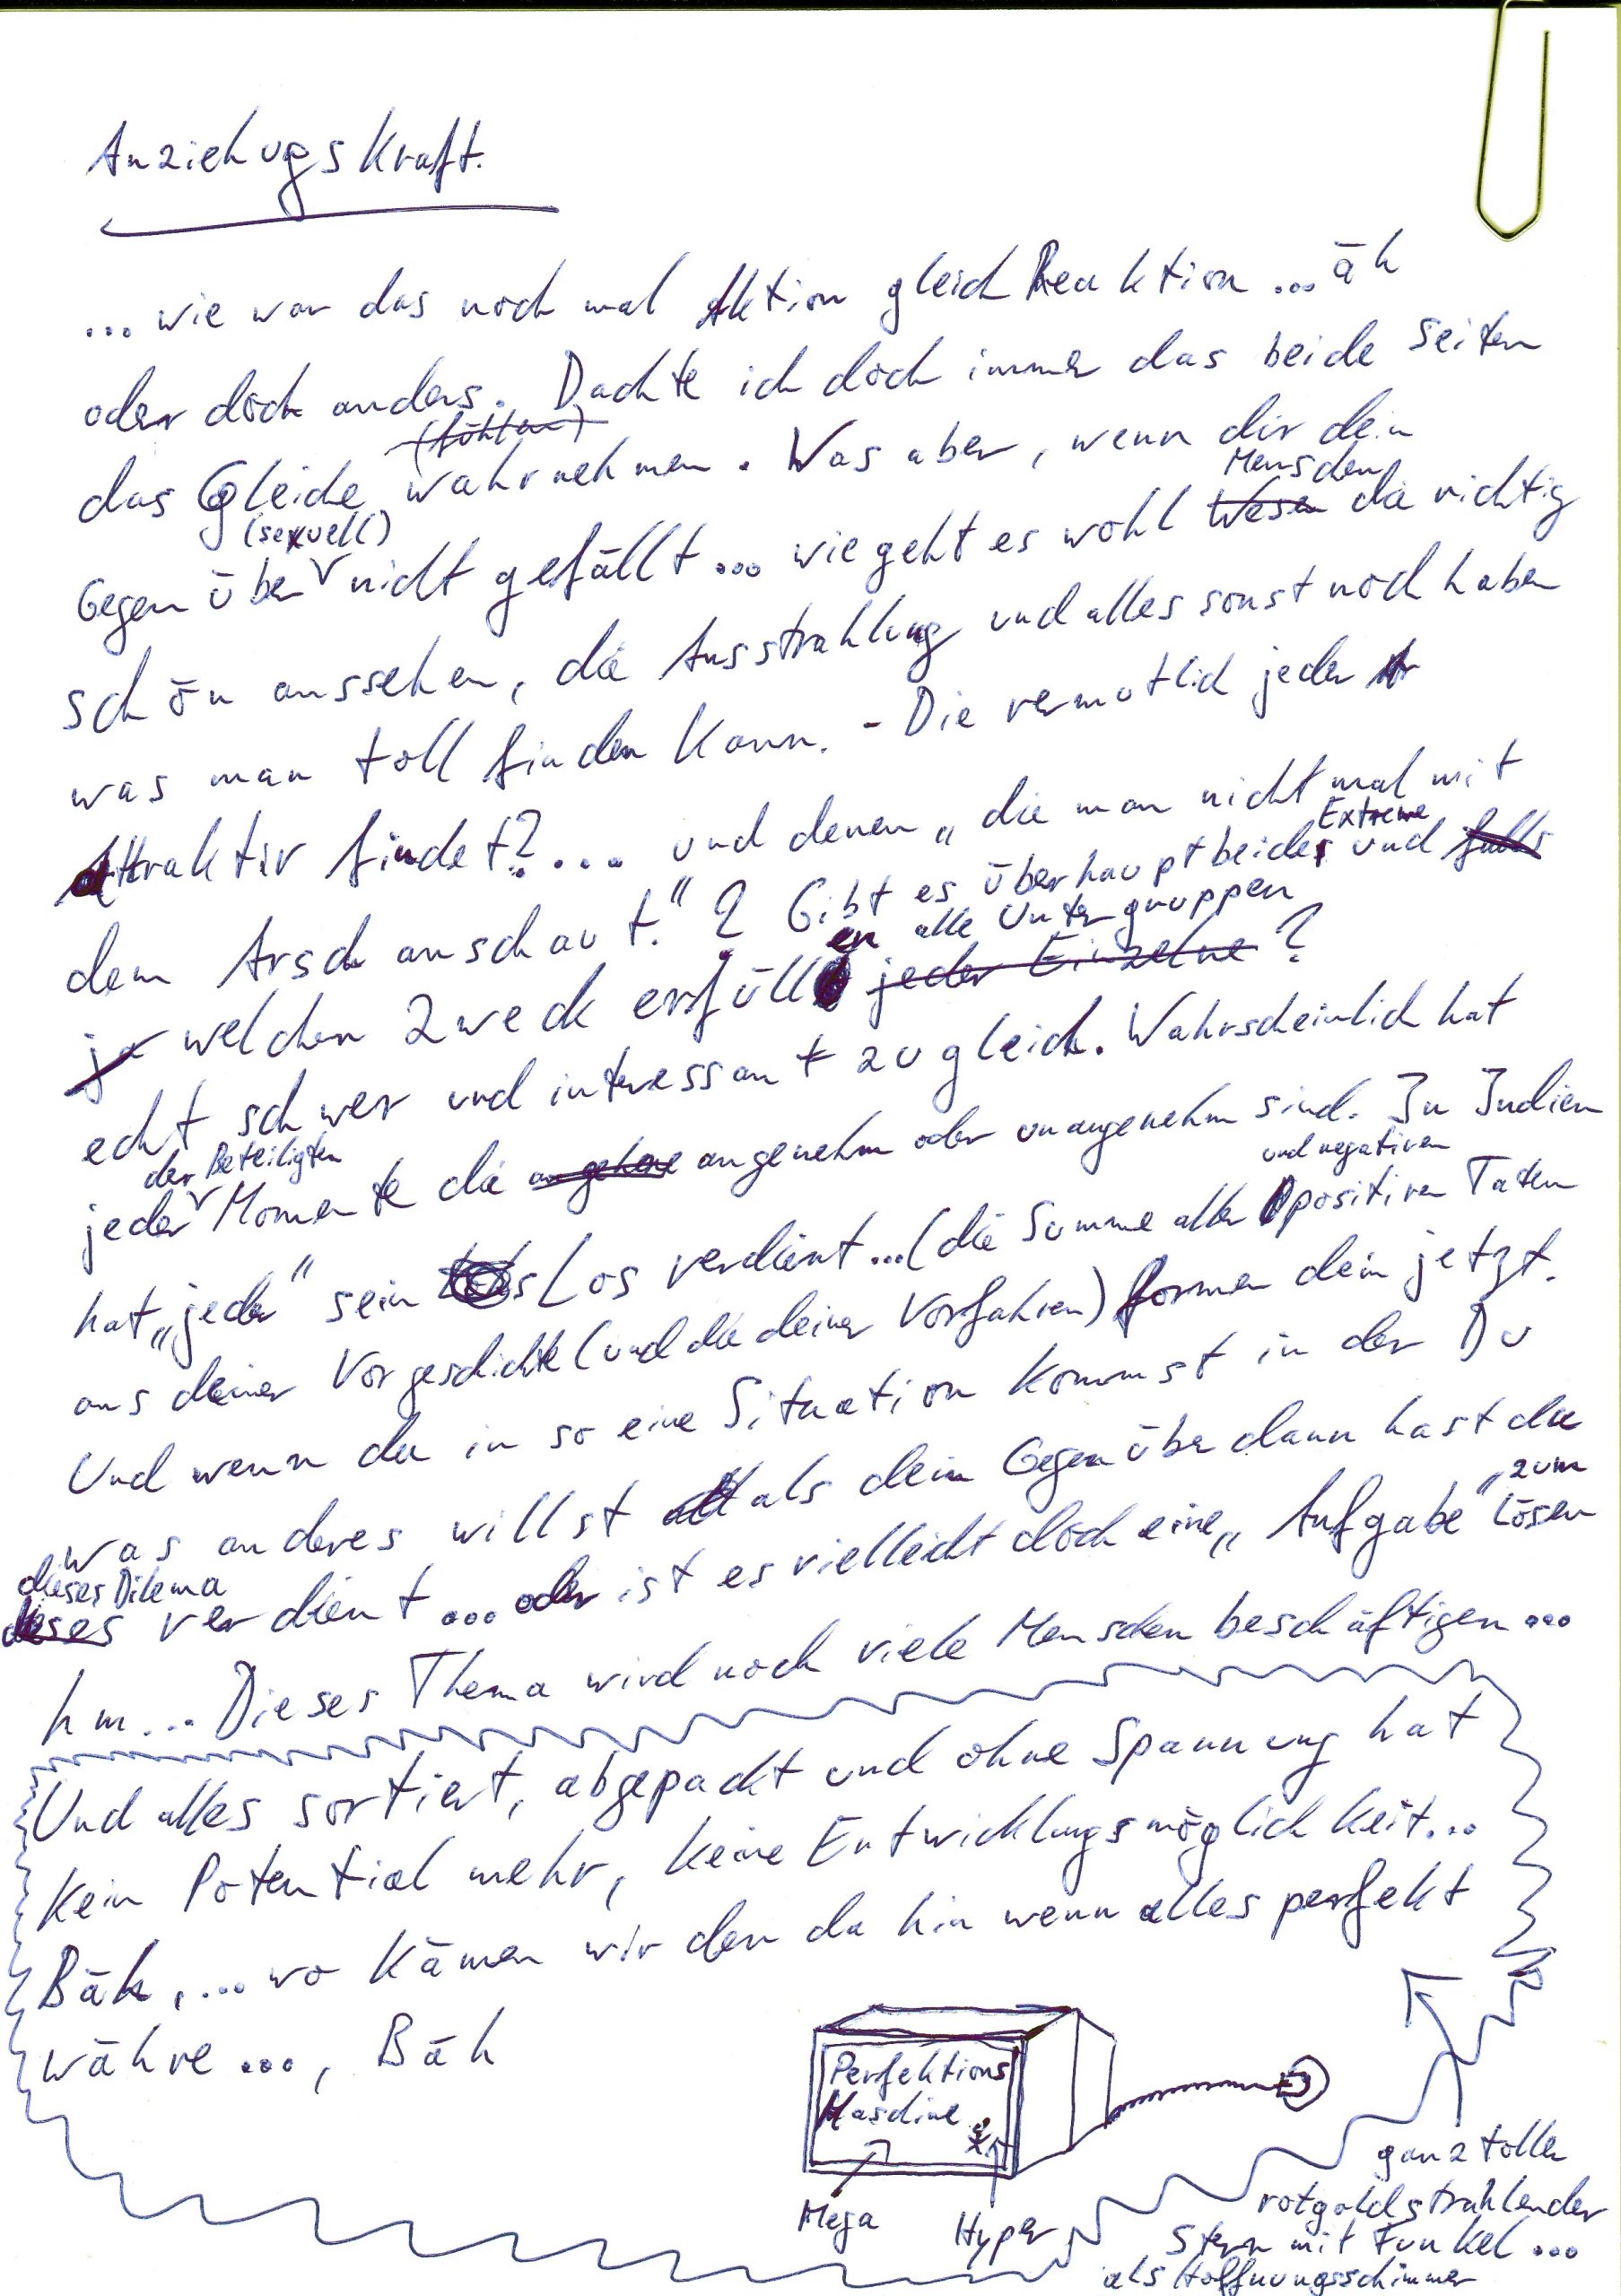 Anziehugskraft.
... wie war das noch mal Aktion gleich Reaktion ... äh
oder doch anders. Dachte ich doch immer das beide seiten
(fühlen)
das Gleiche wahrnehmen. Was aber, wenn dir dein
(sexuell)
Menschen
Gegenüber nicht gefällt ... wie geht es wohl Wesen die richtig
schön aussehen, die Ausstrahlung und alles sonst noch haben
was man toll finden kann. - Die vermutlich jeder
Attraktiv findet? ... und denen „die man nicht mal mit
Extreme
dem Arsch anschaut." ? Gibt es überhaupt beides und falls
en alle Untergruppen
welchen Zweck erfüll jeder Einzelne ?
echt schwer und interessant zugleich. Wahrscheinlich hat
der Beteiligten
jeder Momente die angenehm oder unangenehm sind. In Indien
und negativen
hat „jeder" sein Los verdient ... (die Summe aller positiven Taten
aus deiner Vorgeschichte (und die deiner Vorfahren) formen dein jetzt.
Und wenn du in so eine Situation kommst in der Du
was anderes willst als dein Gegenüber dann hast du
dieses Dilema
zum
dieses verdient ... oder ist es vielleicht doch eine „Aufgabe" Lösen
hm ... Dieses Thema wird noch viele Menschen beschäftigen ...
Und alles sortiert, abgepackt und ohne Spannung hat
Kein Potential mehr, keine Entwicklungsmöglichkeit ...
Bäh, ... wo kämen wir den da hin wenn alles perfekt
währe ..., Bäh
Perfektions
Maschine
Mega
Hyper
ganz toller
rotgoldstrahlender
Stern mit Funkel ...
als Hoffnungsschimmer